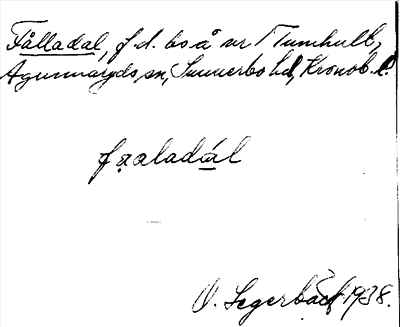 Fålladal, f.d. bs å ur Tumhult,
Agunnaryds sn, Sunnerbo hd, Kronob. l.
fɑladál
O. Segerbäck 1938.